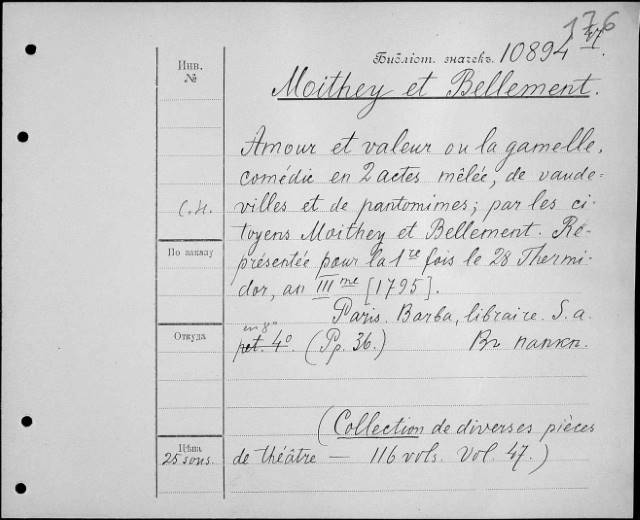 176
Библiот. значекъ. 10894
Инв.
№
Moithey et Bellement.
Amour et valeur ou la gamelle,
comédie en 2 actes mêlée, de vaude-
villes et de pantomimes; par les ci-
toyens Moithey et Bellement. Re-
présentée pour la 1re fois le 28 Thermi-
dor, an IIIme [1795].
Paris. Barba, libraire. S. a.
in 8°
pet. 4°. (Pp. 36.) Въ папкѣ.
(Collection de diverses pièces
de théâtre — 116 vols. Vol. 47.)
С.Н.
По заказу
Откуда
Цѣна
25 sous.